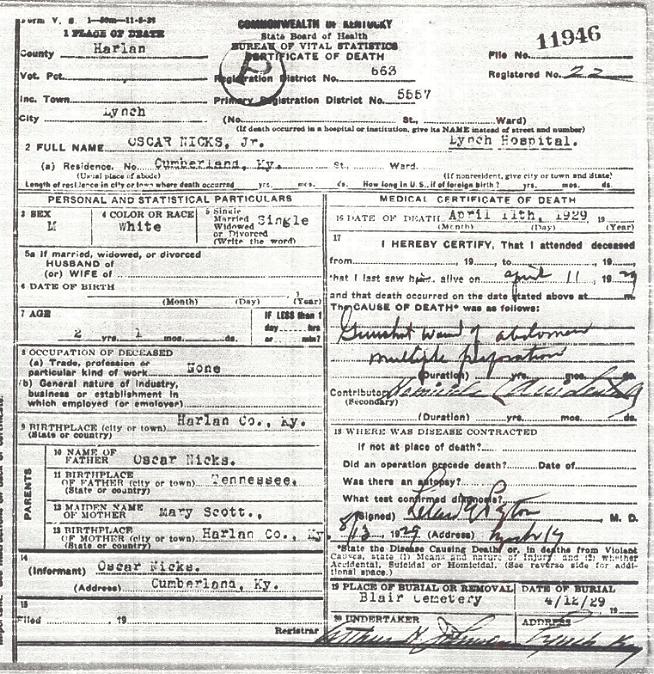 Form V. S. 1-50m-11-8-28
COMMONWEALTH OF KENTUCKY
State Board of Health
BUREAU OF VITAL STATISTICS
CERTIFICATE OF DEATH
1 PLACE OF DEATH
County Harlan
File No. 11946
Vot. Pct.
Registration District No. 563
Registered No. 22
Inc. Town
Primary Registration District No. 5557
City Lynch (No. St., Ward)
(If death occurred in a hospital or institution, give its NAME instead of street and number)
2 FULL NAME OSCAR NICKS, Jr. Lynch Hospital.
(a) Residence. No. Cumberland, Ky. St., Ward.
(Usual place of abode) (If nonresident, give city or town and State)
Length of residence in city or town where death occurred yrs. mos. ds. How long in U.S., if of foreign birth? yrs. mos. ds.
PERSONAL AND STATISTICAL PARTICULARS
3 SEX
M
4 COLOR OR RACE
White
5 Single
Married
Widowed
or Divorced
(Write the word)
Single
5a If married, widowed, or divorced
HUSBAND of
(or) WIFE of
6 DATE OF BIRTH
(Month) (Day) (Year)
7 AGE
2 yrs. 1 mos. ds.
IF LESS than 1
day hrs.
or min?
8 OCCUPATION OF DECEASED
(a) Trade, profession or
particular kind of work None
(b) General nature of industry,
business or establishment in
which employed (or employer)
9 BIRTHPLACE (city or town) Harlan Co., Ky.
(State or country)
PARENTS
10 NAME OF
FATHER Oscar Nicks.
11 BIRTHPLACE
OF FATHER (city or town) Tennessee.
(State or country)
12 MAIDEN NAME
OF MOTHER Mary Scott.,
13 BIRTHPLACE
OF MOTHER (city or town) Harlan Co., Ky.
(State or country)
14
(Informant) Oscar Nicks.
(Address) Cumberland, Ky.
15
Filed , 19
Registrar
MEDICAL CERTIFICATE OF DEATH
16 DATE OF DEATH April 11th, 1929 19
(Month) (Day) (Year)
17
I HEREBY CERTIFY, That I attended deceased
from , 19 , to , 19
that I last saw him alive on april 11 19 29
and that death occurred on the date stated above at m.
The CAUSE OF DEATH* was as follows:
Gunshot wound of abdomen
multiple perforation
(Duration) yrs. mos. ds.
Contributory Homicide Accidental
(Secondary)
(Duration) yrs. mos. ds.
18 WHERE WAS DISEASE CONTRACTED
If not at place of death?
Did an operation precede death? Date of
Was there an autopsy?
What test confirmed diagnosis?
(Signed) M. D.
19 29 (Address) Lynch Ky
*State the Disease Causing Death, or, in deaths from Violent
Causes, state (1) Means and nature of Injury and (2) whether
Accidental, Suicidal or Homicidal. (See reverse side for addi-
tional space.)
19 PLACE OF BURIAL OR REMOVAL
Blair Cemetery
DATE OF BURIAL
4/12/29 19
20 UNDERTAKER
Arthur H. Johnson
ADDRESS
Lynch Ky